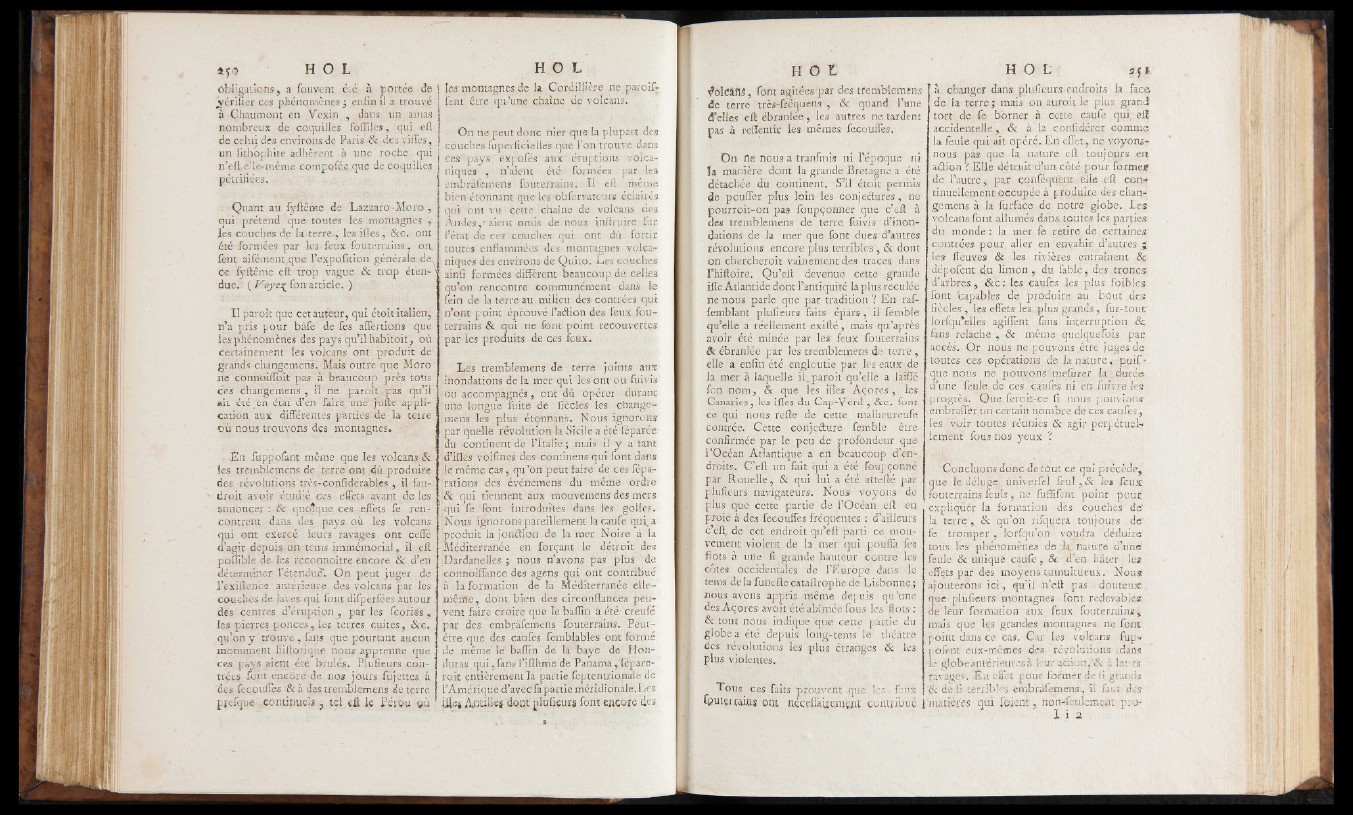 250 HOL
obligations, a souvent été à portée de
vérifier ces phénomènes ; enfin il a trouvé
à Chaumont en Vexin , dans un amas
nombreux de coquilles fossiles, qui est
de celui des environs de Paris & des visses,
un lithophite adhèrent à une roche qui
n'est elle-même composée que de coquilles
pétrifiées.
Quant au systême de Lazzaro-Moro ,
qui prétend que toutes les montagnes ,
les couches de la terre, les isles, &c. ont
été formées par les feux souterrains, on
sent aisément que l'exposition générale de
ce systême est trop vague & trop éten-
due. ( Voyez son article. )
Il paroît que cet auteur, qui étoit italien,
n'a pris pour base de ses assertions que
les phénomènes des pays qu'il habitoit, où
certainement les volcans ont produit de
grands changemens. Mais outre que Moro
ne connoissoit pas à beaucoup près tous
ces changemens , il ne paroît pas qu'il
ait été en état d'en faire une juste appli-
cation aux différentes parties de la terre
où nous trouvons des montagnes.
En supposant même que les volcans &
les tremblemens de terre ont dû produire
des révolutions très-considérables , il fau-
droit avoir étudié ces effets avant de les
annoncer : & quoique ces effets se ren-
contrent dans des pays où les volcans
qui ont exercé leurs ravages ont cessé
d'agir depuis un tems immémorial, il est
possible de les reconnoître encore & d'en
déterminer l'étendue. On peut juger de
l'existence antérieure des volcans par les
couches de laves qui sont dispersées autour
des centres d'éruption , par les scories ,
les pierres ponces, les terres cuites, &c.
qu'on y trouve , sans que pourtant aucun
monument historique nous apprenne que
ces pays aient été brulés. Plusieurs con-
trées sont encore de nos jours sujettes à
des secousses & à des tremblemens de terre
presque continuels , tel est le Pérou où
HOL
les montagnes de la Cordillière ne parois-
sent être qu'une chaîne de volcans.
On ne peut donc nier que la plupart des
couches superficielles que l'on trouve dans
ces pays exposés aux éruptions volca-
niques , n'aient été formées par les
embrâsemens souterrains. Il est même
bien étonnant que les observateurs éclairés
qui ont vu cette chaîne de volcans des
Andes, aient omis de nous instruire sur
l'état de ces couches qui ont dû sortir
toutes enflammées des montagnes volca-
niques des environs de Quito. Les couches
ainsi formées diffèrent beaucoup de celles
qu'on rencontre communément dans le
sein de la terre au milieu des contrées qui
n'ont point éprouvé l'action des feux sou-
terrains & qui ne sont point recouvertes
par les produits de ces feux.
Les tremblemens de terre joints aux
inondations de la mer qui les ont ou suivis
ou accompagnés , ont dû opérer durant
une longue suite de siècles les change-
mens les plus étonnans. Nous ignorons
par quelle révolution la Sicile a été séparée
du continent de l'Italie ; mais il y a tant
d'isles voisines des continens qui sont dans
le même cas, qu'on peut faire de ces sépa-
rations des événemens du même ordre
& qui tiennent aux mouvemens des mers
qui se sont introduites dans les golfes.
Nous ignorons pareillement la cause qui a
produit la jonction de la mer Noire à la
Méditerranée en forçant le détroit des
Dardanelles ; nous n'avons pas plus de
connoissance des agens qui ont contribué
à la formation de la Méditerranée elle-
même, dont bien des circonstances peu-
vent faire croire que le bassin a été creusé
par des embrâsemens souterrains. Peut-
être que des causes semblables ont formé
de même le bassin de la baye de Hon-
duras qui, sans l'isthme de Panama, sépare-
roit entièrement la partie septentrionale de
l'Amérique d'avec sa partie méridionale. Les
isles Antilles dont plusieurs sont encore des
HOL
volcans , sont agitées par des tremblemens
de terre très-fréquens , & quand l'une
d'elles est ébranlée , les autres ne tardent
pas à ressentir les mêmes secousses.
On ne nous a transmis ni l'époque ni
la manière dont la grande Bretagne a été
détachée du continent. S'il étoit permis
de pousser plus loin les conjectures , ne
pourroit-on pas soupçonner que c'est à
des tremblemens de terre suivis d'inon-
dations de la mer que sont dues d'autres
révolutions encore plus terribles , & dont
on chercheroit vainement des traces dans
l'histoire. Qu'est devenue cette grande
isle Atlantide dont l'antiquité la plus reculée
ne nous parle que par tradition ? En ras-
semblant plusieurs faits épars , il semble
qu'elle a réellement existé , mais qu'après
avoir été minée par les feux souterrains
& ébranlée par les tremblemens de terre ,
elle a enfin été engloutie par les eaux de
la mer à laquelle il paroit qu'elle a laissé
son nom, & que les isles Açores , les
Canaries, les isles du Cap-Verd , &c. sont
ce qui nous reste de cette malheureuse
contrée. Cette conjecture semble être
confirmée par le peu de profondeur que
l'Océan Atlantique a en beaucoup d'en-
droits. C'est un fait qui a été soupçonné
par Rouelle, & qui lui a été attesté par
plusieurs navigateurs. Nous voyons de
plus que cette partie de l'Océan est en
proie à des secousses fréquentes : d'ailleurs
c'est de cet endroit qu'est parti ce mou-
vement violent de la mer qui poussa ses
flots à une si grande hauteur contre les
côtes occidentales de l'Europe dans le
tems de la funeste catastrophe de Lisbonne ;
nous avons appris même depuis qu'une
des Açores avoit été abîmée sous les flots :
& tout nous indique que cette partie du
globe a été depuis long-tems le théâtre
des révolutions les plus étranges & les
plus violentes.
Tous ces faits prouvent que les feux
souterrains ont nécessairement contribué
HOL 251
à changer dans plusieurs endroits la face
de la terre ; mais on auroit le plus grand
tort de se borner à cette cause qui est
accidentelle , & à la considérer comme
la seule qui ait opéré. En effet, ne voyons-
nous pas que la nature est toujours en
action ? Elle détruit d'un côté pour former
de l'autre , par conséquent elle est con-
tinuellement occupée à produire des chan-
gemens à la surface de notre globe. Les
volcans sont allumés dans toutes les parties
du monde : la mer se retire de certaines
contrées pour aller en envahir d'autres ;
les fleuves & les rivières entraînent &
déposent du limon , du sable , des troncs
d'arbres , &c : les causes les plus foibles
sont capables de produire au bout des
siècles , les effets les plus grands , sur-tout
lorsqu'elles agissent sans interruption &
sans relache , & même quelquefois par
accès. Or nous ne pouvons être juges de
toutes ces opérations de la nature, puis-
que nous ne pouvons mesurer la durée
d'une seule de ces causes ni en suivre les
progrès. Que seroit-ce si nous pouvions
embrasser un certain nombre de ces causes,
les voir toutes réunies & agir perpétuel-
lement sous nos yeux ?
Concluons donc de tout ce qui précède,
que le déluge universel seul , & les feux
souterrains seuls , ne suffisent point pour
expliquer la formation des couches de
la terre , & qu'on risquera toujours de
se tromper , lorsqu'on voudra déduire
tous les phénomènes de la nature d'une
seule & unique cause , & d'en hâter les
effets par des moyens tumultueux. Nous
ajouterons ici , qu'il n'est pas douteux
que plusieurs montagnes sont redevables
de leur formation aux feux souterrains,
mais que les grandes montagnes ne sont
point dans ce cas. Car les volcans sup-
posent eux-mêmes des révolutions dans
le globe antérieures à leur action, & à leurs
ravages. En effet pour former de si grands
& de si terribles embrâsemens, il faut des
matières qui soient , non-seulement pro-
I i 2